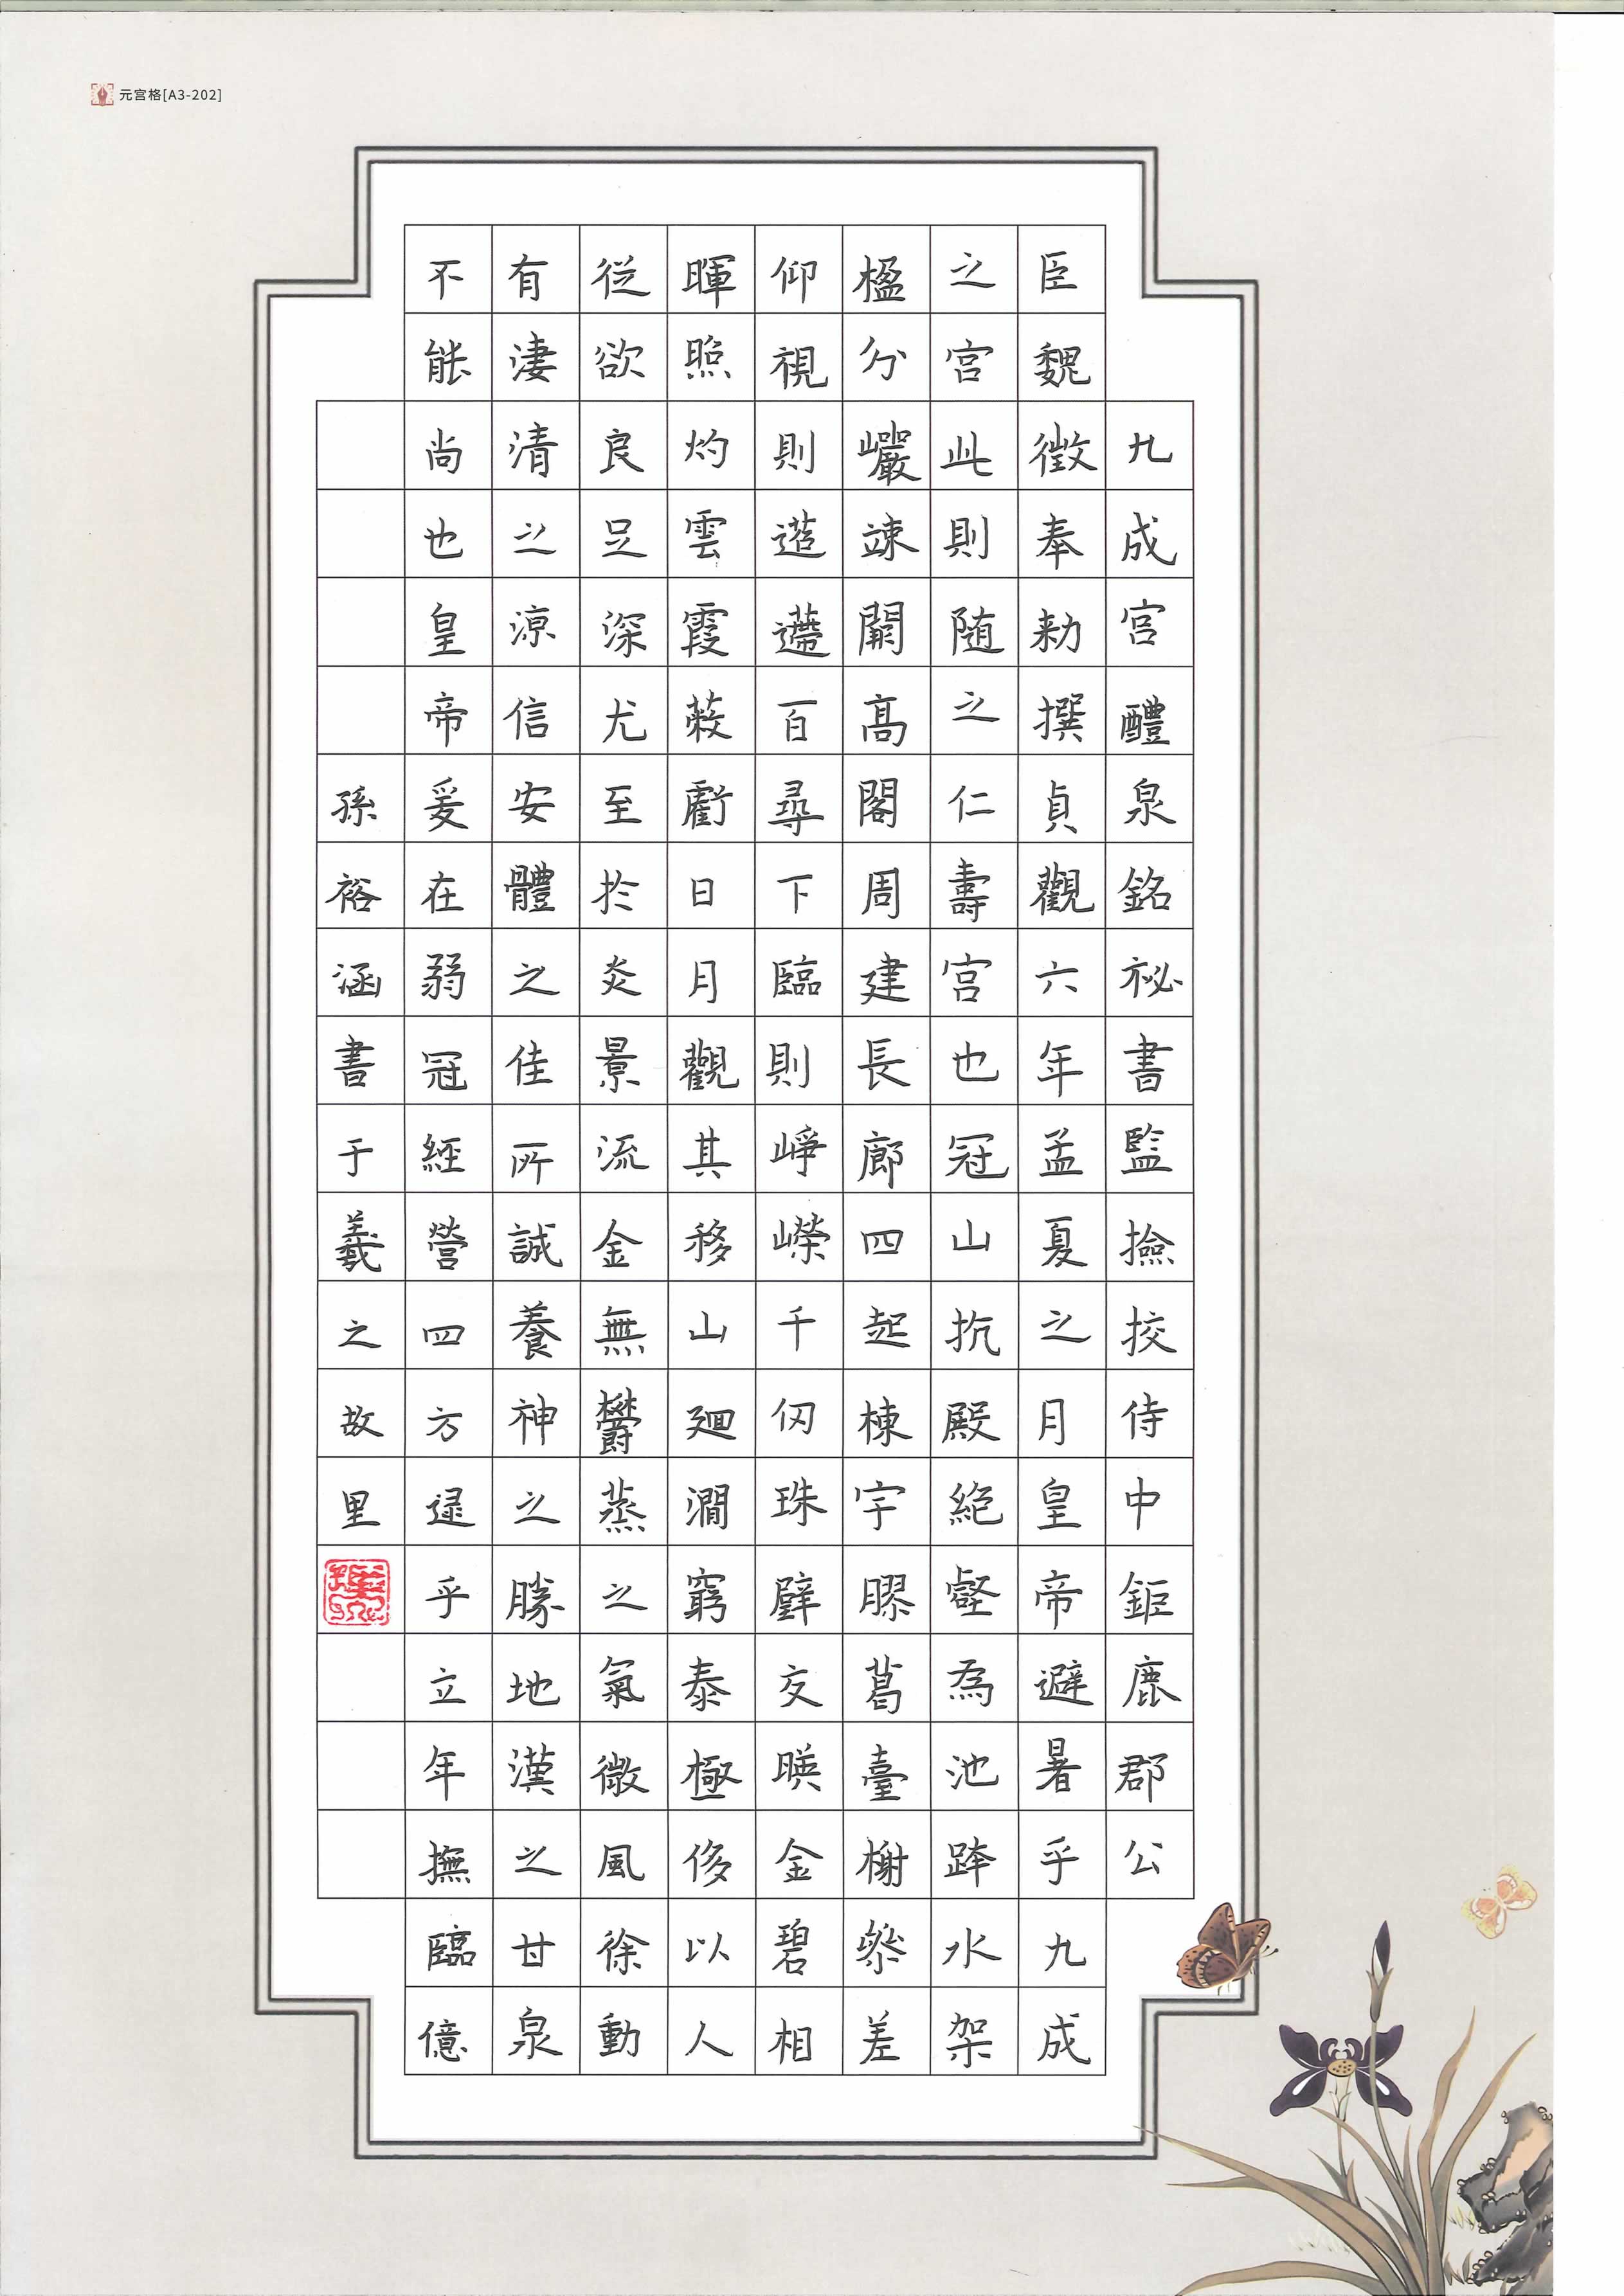 元宫格[A3-202]
九成宮醴泉銘祕書監撿挍侍中鉅鹿郡公
臣魏徵奉勅撰貞觀六年孟夏之月皇帝避暑乎九成
之宮此則随之仁壽宮也冠山抗殿絕壑為池跨水架
楹分巖竦闕高閣周建長廊四起棟宇膠葛臺榭參差
仰視則迢遰百尋下臨則崢嶸千仞珠璧交暎金碧相
暉照灼雲霞蔽虧日月觀其移山廻澗窮泰極侈以人
從欲良足深尤至於炎景流金無鬱蒸之氣微風徐動
有淒清之涼信安體之佳所誠養神之勝地漢之甘泉
不能尚也皇帝爰在弱冠經營四方逮乎立年撫臨億
孫裕涵書于羲之故里